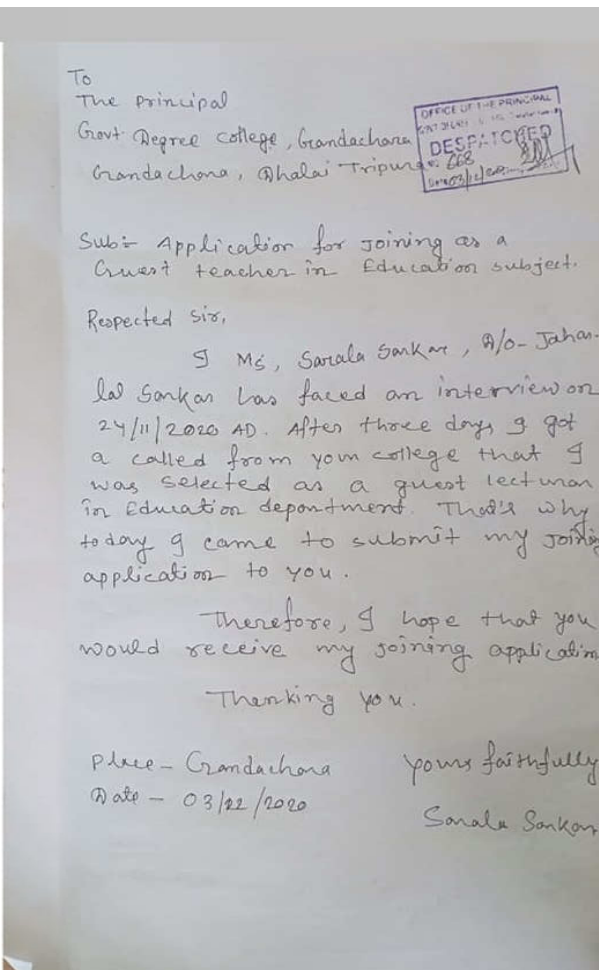 To
The Principal
Govt. Degree College, Gandachara
Gandachara, Dhalai Tripura
OFFICE OF THE PRINCIPAL
DESPATCHED
No 668
Sub:- Application for joining as a
Guest teacher in Education subject.
Respected Sir,
I Ms, Sarala Sarkar, D/o- Jahar-
lal Sarkar has faced an interview on
24/11/2020 AD. After three days I got
a called from your college that I
was selected as a guest lecturar
in Education department. That's why
today I came to submit my joining
application to you.
Therefore, I hope that you
would receive my joining application
Thanking you.
Place - Gandachara
yours faithfully
Date - 03/12/2020
Sarala Sarkar